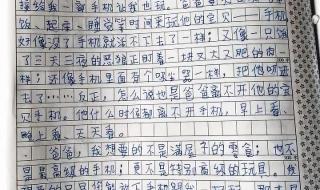 接给我一个手机让我也玩。爸爸
饭、起床、睡觉等时间来玩他的宝贝——手机
好像没了手机就活不下去了一样；又像一只饿
了三天三夜的恶狼正盯着一块又大又肥的肉一
样；还像手机里面有个吸尘器一样，把他吸进
去了……反正，怎么说也是爸爸离不开他的宝
贝手机。他什么时候能离不开手机，早上看、
晚上看、天天看。
爸爸，我想要的不是满屋子的零食；也不
是最高级的手机；更不是特别高级的玩具。